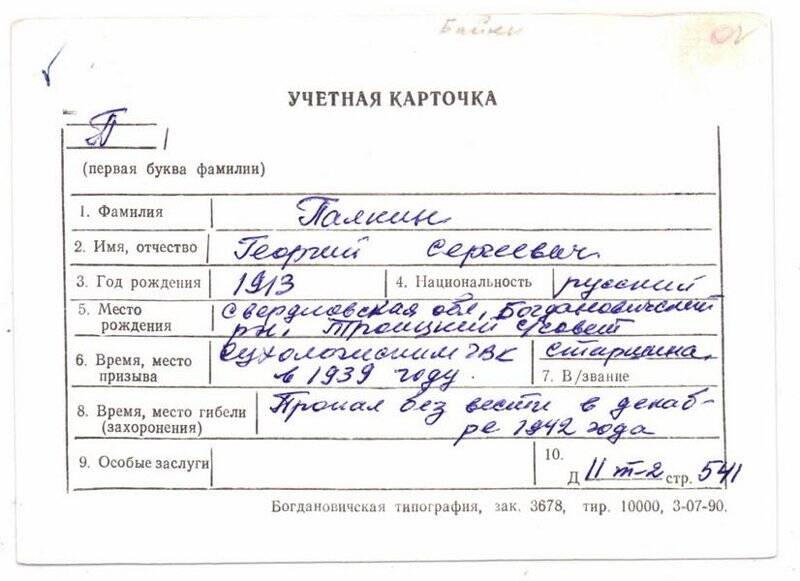 Байны
02
УЧЕТНАЯ КАРТОЧКА
П
(первая буква фамилии)
1. Фамилия Палкин
2. Имя, отчество Георгий Сергеевич
3. Год рождения 1913 4. Национальность русский
5. Место рождения Свердловская обл, Богдановичский
рн, Троицкий с/совет
6. Время, место призыва Сухоложским РВК
в 1939 году.
старшина
7. В/звание
8. Время, место гибели (захоронения) Пропал без вести в декаб-
ре 1942 года
9. Особые заслуги
10.
Д II т-2 стр. 541
Богдановичская типография, зак. 3678, тир. 10000, 3-07-90.